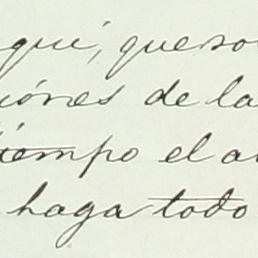 aquí, que so
iones de la
tiempo el a
haga todo